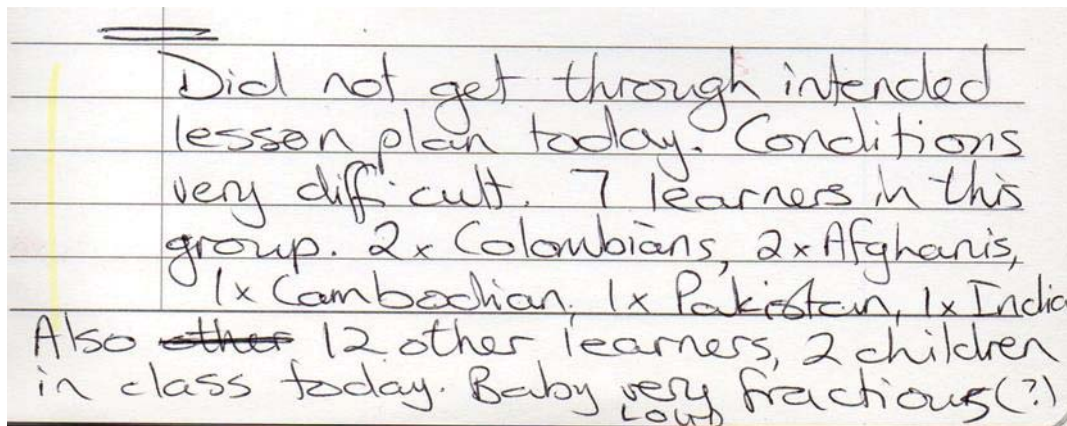 Did not get through intended
lesson plan today. Conditions
very difficult. 7 learners in this
group. 2x Colombians, 2x Afghanis,
1x Cambodian, 1x Pakistan, 1x India
Also other 12 other learners, 2 children
in class today. Baby very fractious (?)
LOUD